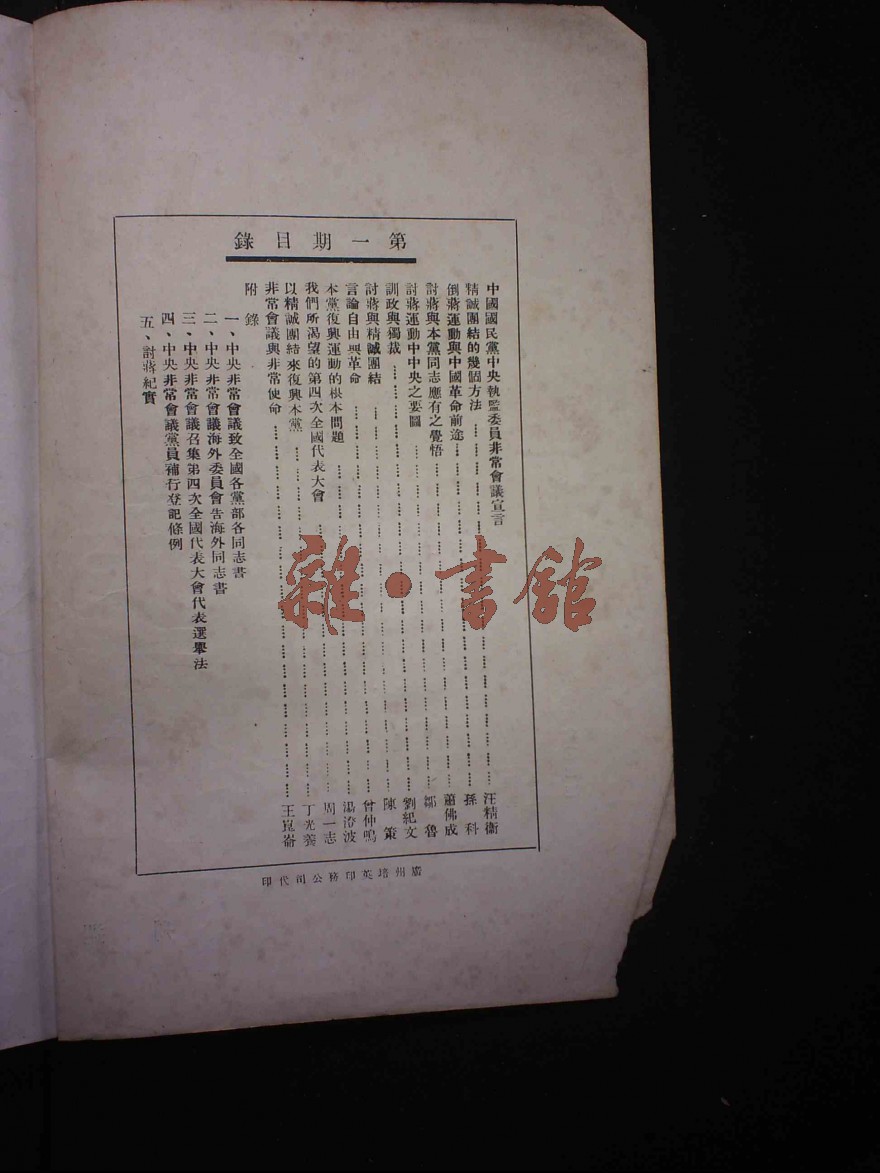 第一期目錄
中國國民黨中央執監委員非常會議宣言
精誠團結的幾個方法……汪精衞
倒蔣運動與中國革命前途……孫科
討蔣與本黨同志應有之覺悟……蕭佛成
討蔣運動中中央之要圖……鄒魯
訓政與獨裁……劉紀文
討蔣與精誠團結……陳策
言論自由與革命……曾仲鳴
本黨復興運動的根本問題……湯澄波
我們所渴望的第四次全國代表大會……周一志
以精誠團結來復興本黨……丁光善
非常會議與非常使命……王崑崙
附錄
一、中央非常會議致全國各黨部各同志書
二、中央非常會議海外委員會告海外同志書
三、中央非常會議召集第四次全國代表大會代表選舉法
四、中央非常會議黨員補行登記條例
五、討蔣紀實
廣州培英印務公司代印
雜·書館